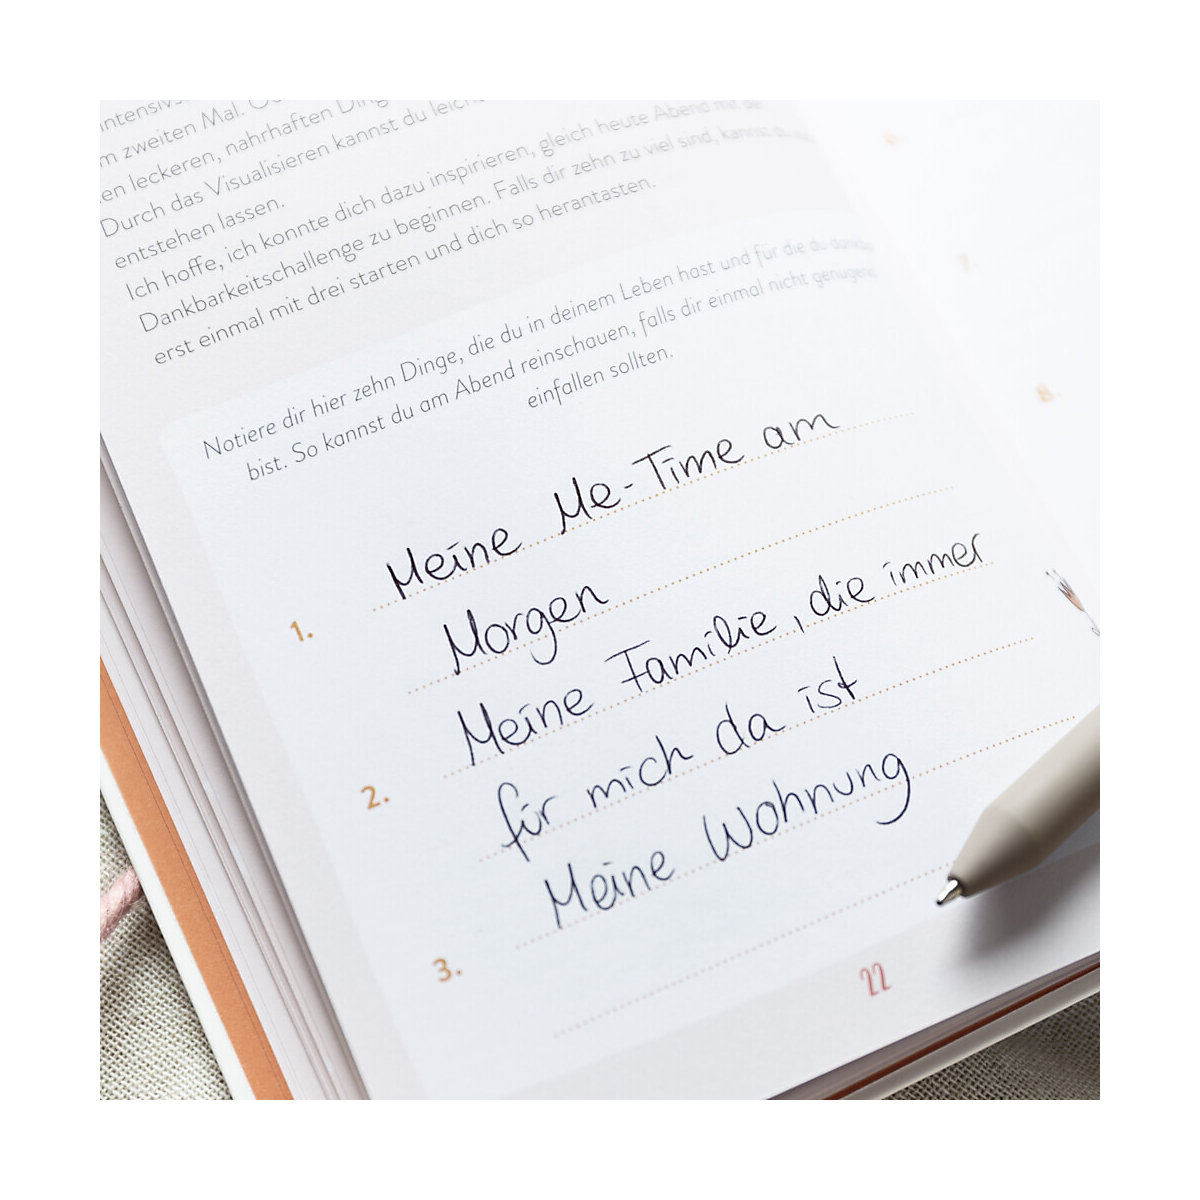 m zweiten Mal.
en leckeren, nahrhaften
Durch das Visualisieren kannst du
entstehen lassen.
Ich hoffe, ich konnte dich dazu inspirieren, gleich heute Abend mit der
Dankbarkeitschallenge zu beginnen. Falls dir zehn zu viel sind, kannst du
erst einmal mit drei starten und dich so herantasten.
Notiere dir hier zehn Dinge, die du in deinem Leben hast und für die du dankbar
bist. So kannst du am Abend reinschauen, falls dir einmal nicht genügend
einfallen sollten.
1. Meine Me-Time am
Morgen
2. Meine Familie, die immer
für mich da ist
3. Meine Wohnung
22
7.
8.